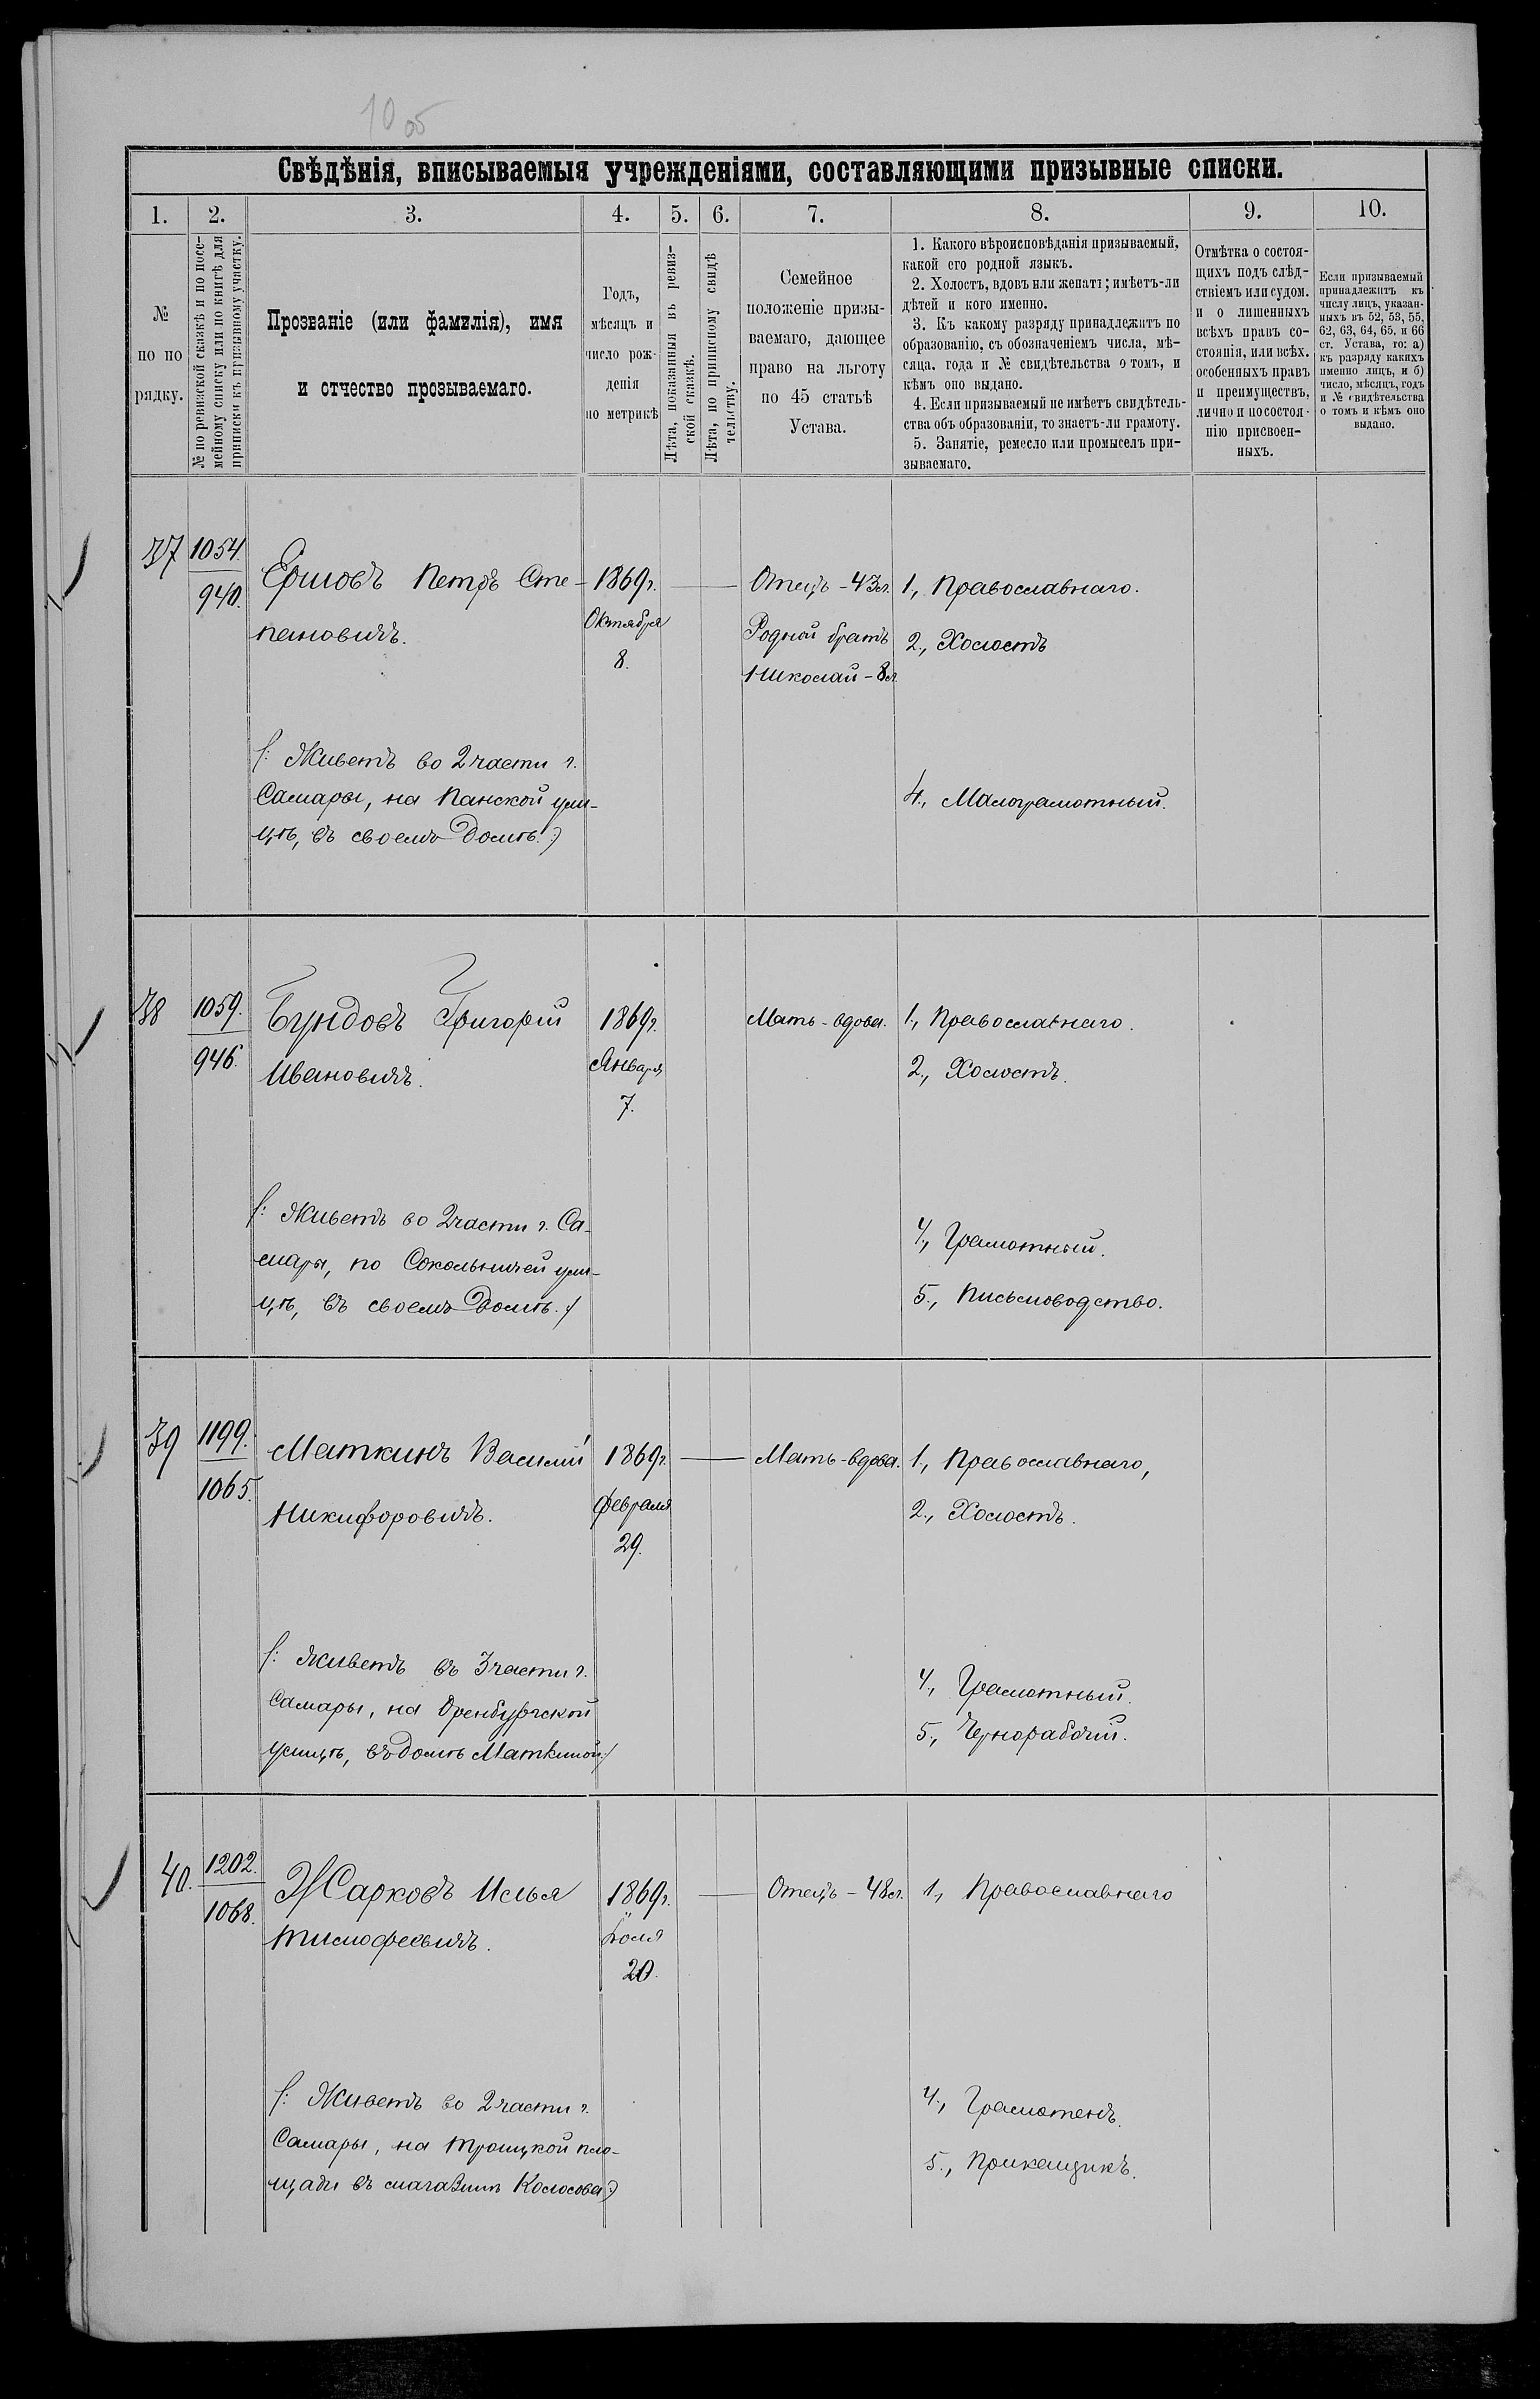 10 об
Свѣдѣнія, вписываемыя учрежденіями, составляющими призывные списки.
1. 2. 3. 4. 5. 6. 7. 8. 9. 10.
№
по по
рядку.
№ по ревизской сказкѣ и по посе-
мейному списку или по книгѣ для
приписки къ призывному участку.
Прозваніе (или фамилія), имя
и отчество прозываемаго.
Годъ,
мѣсяцъ и
число рож-
денія
по метрикѣ
Лѣта, показанныя въ ревиз-
ской сказкѣ.
Лѣта, по приписному свидѣ
тельству.
Семейное
положеніе призы-
ваемаго, дающее
право на льготу
по 45 статьѣ
Устава.
1. Какого вѣроисповѣданія призываемый,
какой его родной языкъ.
2. Холостъ, вдовъ или женатъ; имѣетъ-ли
дѣтей и кого именно.
3. Къ какому разряду принадлежитъ по
образованію, съ обозначеніемъ числа, мѣ-
сяца, года и № свидѣтельства о томъ, и
кѣмъ оно выдано.
4. Если призываемый не имѣетъ свидѣтель-
ства объ образованіи, то знаетъ-ли грамоту.
5. Занятіе, ремесло или промыселъ при-
зываемаго.
Отмѣтка о состоя-
щихъ подъ слѣд-
ствіемъ или судом.
и о лишенныхъ
всѣхъ правъ со-
стоянія, или всѣх.
особенныхъ правъ
и преимуществъ,
лично и по состоя-
нію присвоен-
ныхъ.
Если призываемый
принадлежитъ къ
числу лицъ, указан-
ныхъ въ 52, 53, 55,
62, 63, 64, 65, и 66
ст. Устава, то: а)
къ разряду какихъ
именно лицъ, и б)
число, мѣсяцъ, годъ
и № свидѣтельства
о томъ и кѣмъ оно
выдано.
37
1054.
940.
Ершовъ Петръ Сте-
пановичъ.
1869г.
Октября
8.
Отецъ - 43л.
Родной братъ
Николай - 8л.
1., Православнаго.
2., Холостъ
/: Живетъ во 2 части г.
Самары, на Панской ули-
цѣ, въ своемъ домѣ. :/
4., Малограмотный.
38
1059.
946.
Бундовъ Григорій
Ивановичъ.
1869г.
Января
7.
Мать - вдова.
1., Православнаго.
2., Холостъ.
/: Живетъ во 2 части г. Са-
мары, по Сокольничей ули-
цѣ, въ своемъ домѣ. :/
4., Грамотный.
5., Письмоводство.
39
1199.
1065.
Маткинъ Василій
Никифоровичъ.
1869г.
Февраля
29.
Мать - вдова.
1., Православнаго,
2., Холостъ.
/: Живетъ въ 3 части г.
Самары, на Оренбургской
улицѣ, въ домѣ Маткиной :/
4., Грамотный.
5., Чернорабочій.
40.
1202.
1068.
Жарковъ Илья
Тимофеевичъ.
1869г.
Іюля
20.
Отецъ - 48л.
1., Православнаго
/: Живетъ во 2 части г.
Самары, на Троицкой пло-
щади въ магазинѣ Колосова :/
4., Грамотенъ.
5., Прикащикъ.